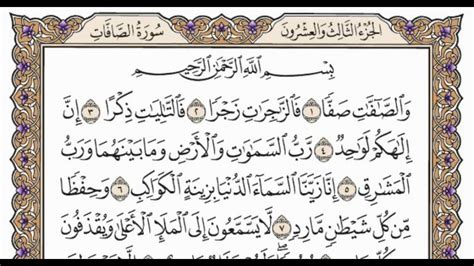 الجُزْءُ الثَّالِثُ وَالعِشْرُونَ
سُورَةُ الصَّافَّاتِ
بِسْمِ اللَّهِ الرَّحْمَٰنِ الرَّحِيمِ
وَالصَّٰٓفَّٰتِ صَفًّا ١ فَالزَّٰجِرَٰتِ زَجْرًا ٢ فَالتَّٰلِيَٰتِ ذِكْرًا ٣ إِنَّ
إِلَٰهَكُمْ لَوَٰحِدٌ ٤ رَّبُّ السَّمَٰوَٰتِ وَالْأَرْضِ وَمَا بَيْنَهُمَا وَرَبُّ
الْمَشَٰرِقِ ٥ إِنَّا زَيَّنَّا السَّمَآءَ الدُّنْيَا بِزِينَةٍ الْكَوَاكِبِ ٦ وَحِفْظًا
مِّن كُلِّ شَيْطَٰنٍ مَّارِدٍ ٧ لَّا يَسَّمَّعُونَ إِلَى الْمَلَإِ الْأَعْلَىٰ وَيُقْذَفُونَ